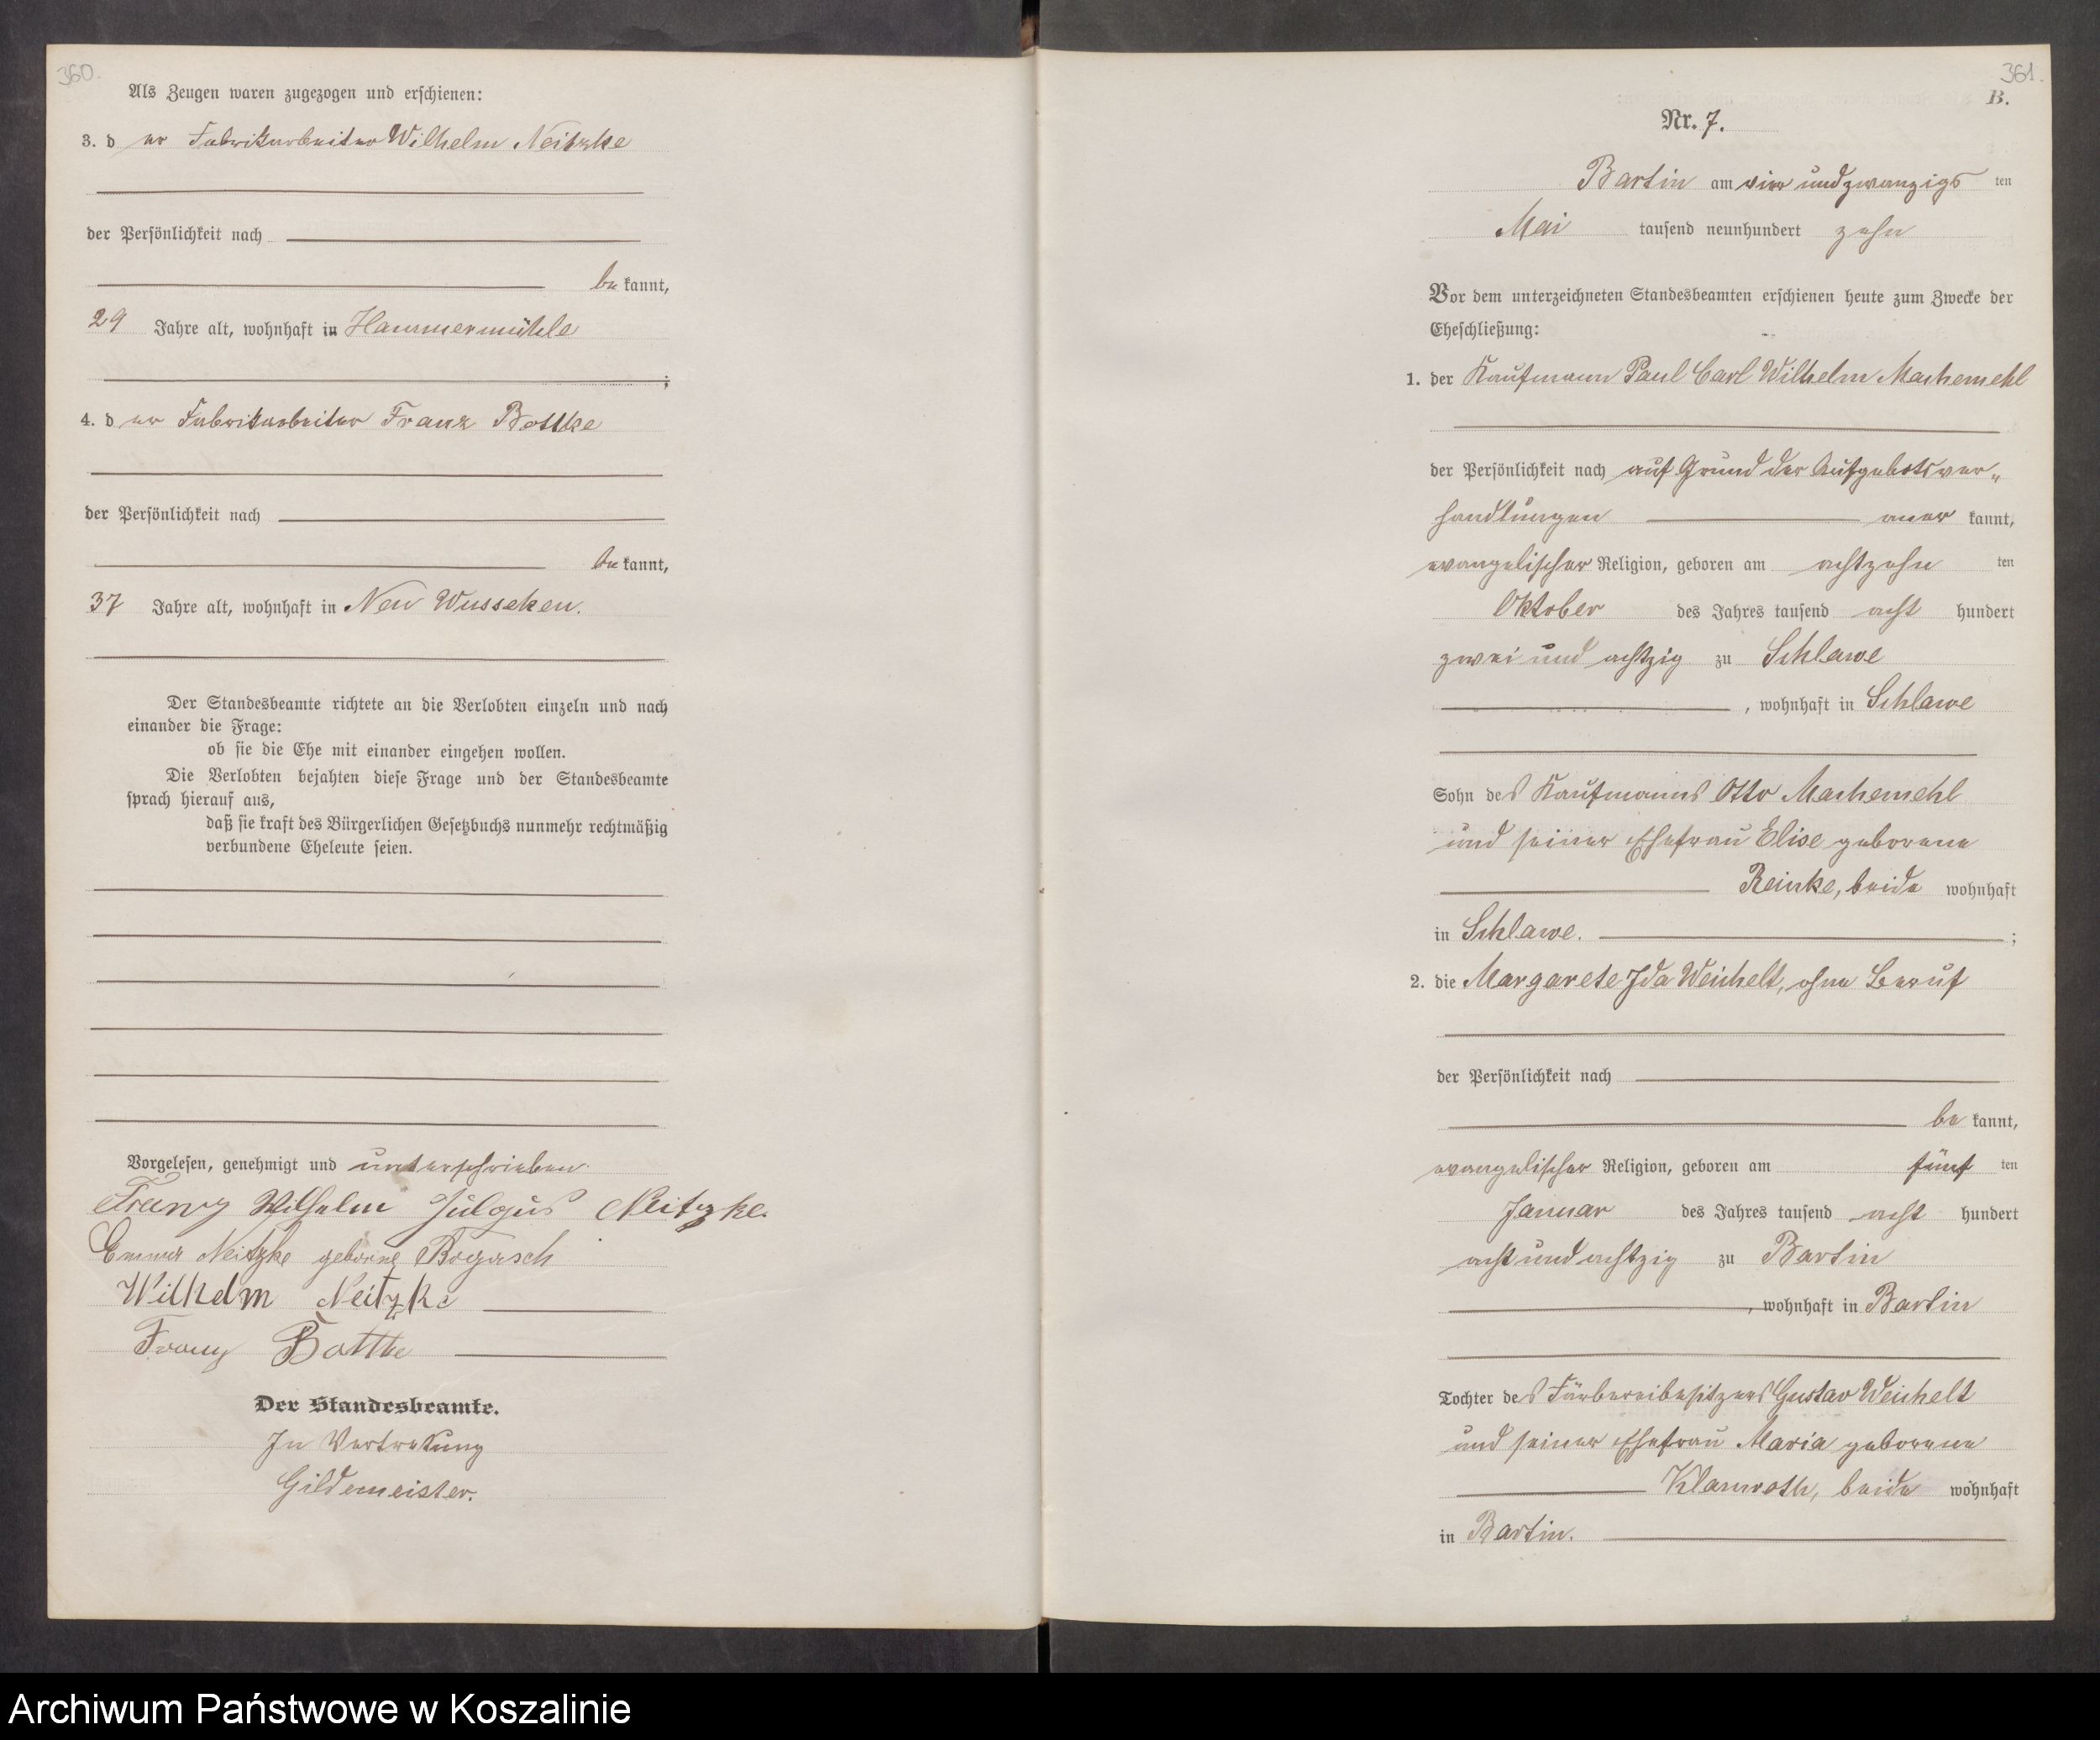 360.
Als Zeugen waren zugezogen und erschienen:
3. der Fabrikarbeiter Wilhelm Neitzke
der Persönlichkeit nach
bekannt,
29 Jahre alt, wohnhaft in Hammermühle
;
4. der Fabrikarbeiter Franz Bottke
der Persönlichkeit nach
bekannt,
37 Jahre alt, wohnhaft in Neu Wusseken.
Der Standesbeamte richtete an die Verlobten einzeln und nach
einander die Frage:
ob sie die Ehe mit einander eingehen wollen.
Die Verlobten bejahten diese Frage und der Standesbeamte
sprach hierauf aus,
daß sie kraft des Bürgerlichen Gesetzbuchs nunmehr rechtmäßig
verbundene Eheleute seien.
Vorgelesen, genehmigt und unterschrieben.
Franz Wilhelm Julius Neitzke.
Emma Neitzke geborne Bogasch
Wilhelm Neitzke
Franz Bottke
Der Standesbeamte.
In Vertretung
Gildemeister.
361.
B.
Nr. 7.
Bartin am vier und zwanzigsten
Mai tausend neunhundert zehn
Vor dem unterzeichneten Standesbeamten erschienen heute zum Zwecke der
Eheschließung:
1. der Kaufmann Paul Carl Wilhelm Machemehl
der Persönlichkeit nach auf Grund der Aufgebotsver„
handlungen anerkannt,
evangelischer Religion, geboren am achtzehnten
Oktober des Jahres tausend acht hundert
zwei und achtzig zu Schlawe
, wohnhaft in Schlawe
Sohn des Kaufmanns Otto Machemehl
und seiner Ehefrau Elise geborene
Reinke, beide wohnhaft
in Schlawe. ;
2. die Margarete Ida Weichelt, ohne Beruf
der Persönlichkeit nach
bekannt,
evangelischer Religion, geboren am fünften
Januar des Jahres tausend acht hundert
acht und achtzig zu Bartin
, wohnhaft in Bartin
Tochter des Färbereibesitzers Gustav Weichelt
und seiner Ehefrau Maria geborene
Klamroth, beide wohnhaft
in Bartin.
Archiwum Państwowe w Koszalinie